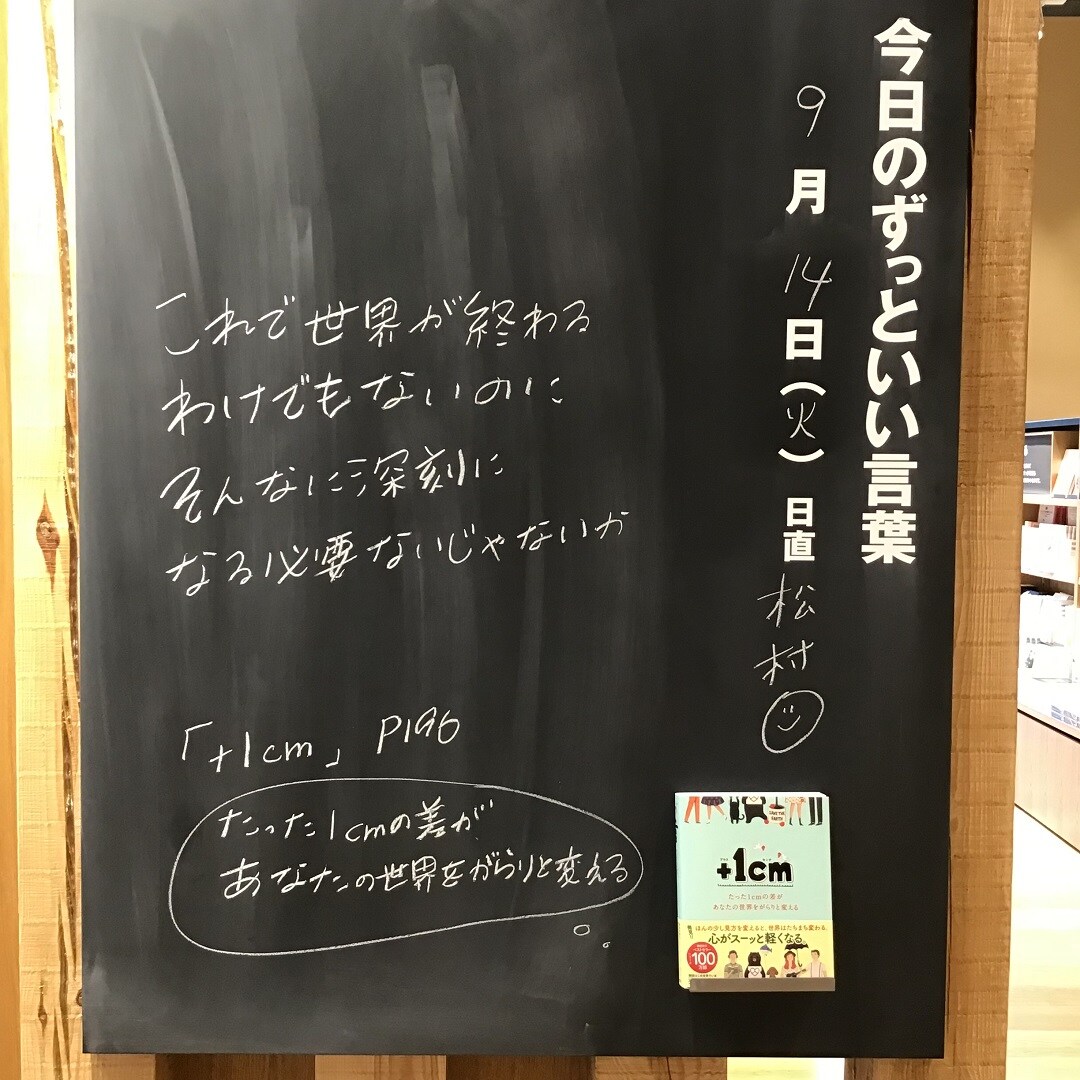 今日のずっといい言葉
9月14日(火) 日直 松村
これで世界が終わる
わけでもないのに
そんなに深刻に
なる必要ないじゃないか
「+1cm」 P196
たった1cmの差が
あなたの世界をがらりと変える
+1cm
たった1cmの差が
あなたの世界をがらりと変える
ほんの少し見方を変えると、世界はたちまち変わる。
心がスーッと軽くなる。
100